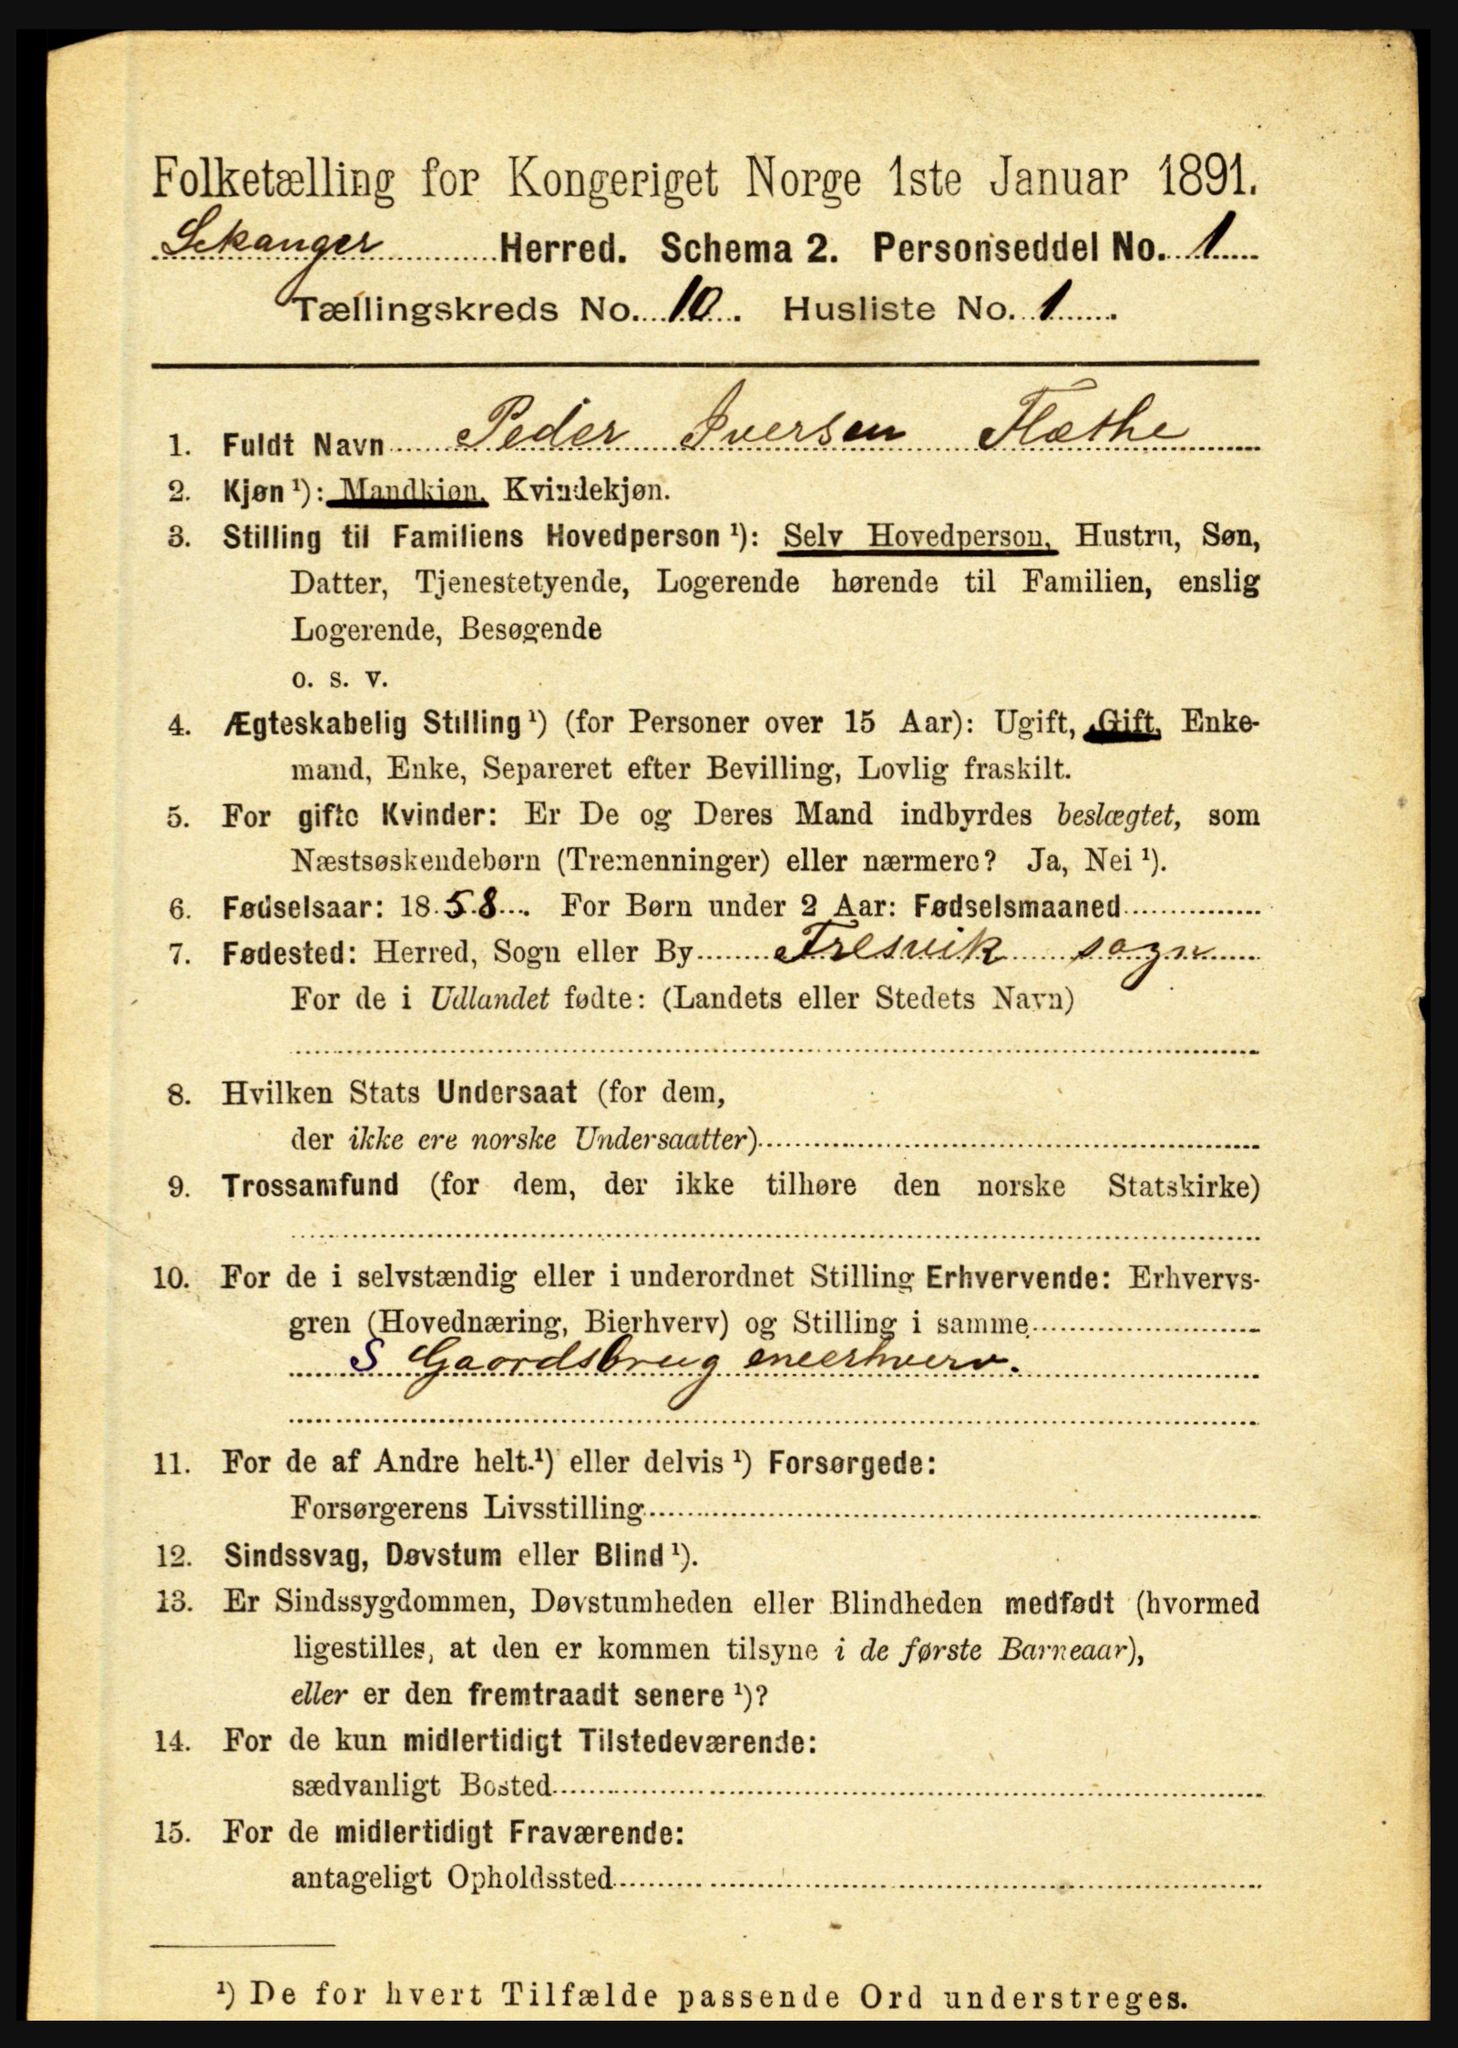 Folketælling for Kongeriget Norge 1ste Januar 1891.
Lekanger Herred. Schema 2. Personseddel No. 1
Tællingskreds No. 10. Husliste No. 1.
1. Fuldt Navn Peder Iversen Flæthe
2. Kjøn ¹): Mandkjøn, Kvindekjøn.
3. Stilling til Familiens Hovedperson ¹): Selv Hovedperson, Hustru, Søn,
Datter, Tjenestetyende, Logerende hørende til Familien, enslig
Logerende, Besøgende
o. s. v.
4. Ægteskabelig Stilling ¹) (for Personer over 15 Aar): Ugift, Gift, Enke-
mand, Enke, Separeret efter Bevilling, Lovlig fraskilt.
5. For gifte Kvinder: Er De og Deres Mand indbyrdes beslægtet, som
Næstsøskendebørn (Tremenninger) eller nærmere? Ja, Nei ¹).
6. Fødselsaar: 1858. For Børn under 2 Aar: Fødselsmaaned
7. Fødested: Herred, Sogn eller By Fresvik sogn
For de i Udlandet fødte: (Landets eller Stedets Navn)
8. Hvilken Stats Undersaat (for dem,
der ikke ere norske Undersaatter)
9. Trossamfund (for dem, der ikke tilhøre den norske Statskirke)
10. For de i selvstændig eller i underordnet Stilling Erhvervende: Erhvervs-
gren (Hovednæring, Bierhverv) og Stilling i samme
S Gaardsbrug eneerhverv.
11. For de af Andre helt ¹) eller delvis ¹) Forsørgede:
Forsørgerens Livsstilling
12. Sindssvag, Døvstum eller Blind ¹).
13. Er Sindssygdommen, Døvstumheden eller Blindheden medfødt (hvormed
ligestilles, at den er kommen tilsyne i de første Barneaar),
eller er den fremtraadt senere ¹)?
14. For de kun midlertidigt Tilstedeværende:
sædvanligt Bosted
15. For de midlertidigt Fraværende:
antageligt Opholdssted
¹) De for hvert Tilfælde passende Ord understreges.